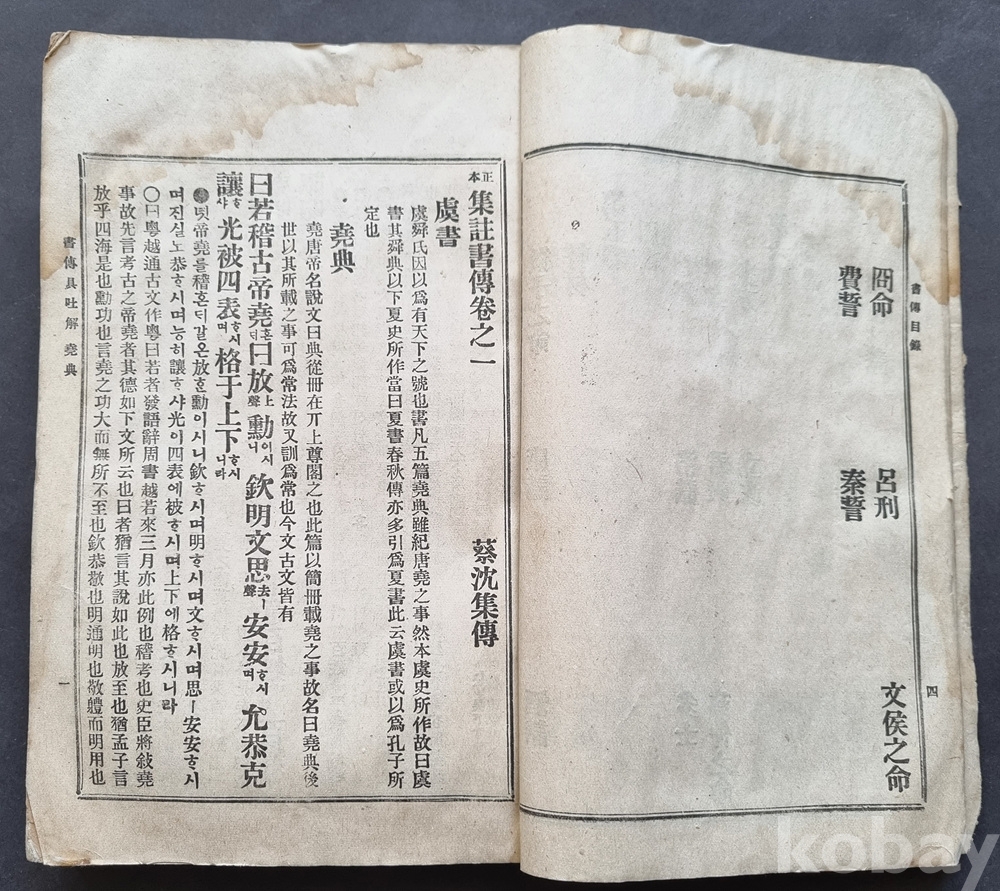 書傳目錄 四
冏命 呂刑 文侯之命
費誓 秦誓
正本 集註書傳卷之一 蔡沈集傳
虞書
虞舜氏因以爲有天下之號也書凡五篇堯典雖紀唐堯之事然本虞史所作故曰虞
書其舜典以下夏史所作當曰夏書春秋傳亦多引爲夏書此云虞書或以爲孔子所
定也
堯典
堯唐帝名說文曰典從冊在丌上尊閣之也此篇以簡冊載堯之事故名曰堯典後
世以其所載之事可爲常法故又訓爲常也今文古文皆有
曰若稽古帝堯ᄒᆞᆫ디曰放上聲勳이시니欽明文思去聲ㅣ安安ᄒᆞ시며允恭克
讓ᄒᆞ샤光被四表ᄒᆞ시며格于上下ᄒᆞ시니라
녯帝堯를稽ᄒᆞᆫ디갈ᄋᆞᆫ放ᄒᆞᆫ勳이시니欽ᄒᆞ시며明ᄒᆞ시며文ᄒᆞ시며思ㅣ安安ᄒᆞ시
며진실노恭ᄒᆞ시며능히讓ᄒᆞ샤光이四表에被ᄒᆞ시며上下에格ᄒᆞ시니라
○曰粤越通古文作粤曰若者發語辭周書越若來三月亦此例也稽考也史臣將敍堯
事故先言考古之帝堯者其德如下文所云也曰者猶言其說如此也放至也猶孟子言
放乎四海是也勳功也言堯之功大而無所不至也欽恭敬也明通明也敬軆而明用也
書傳具吐解 堯典 一
kobay